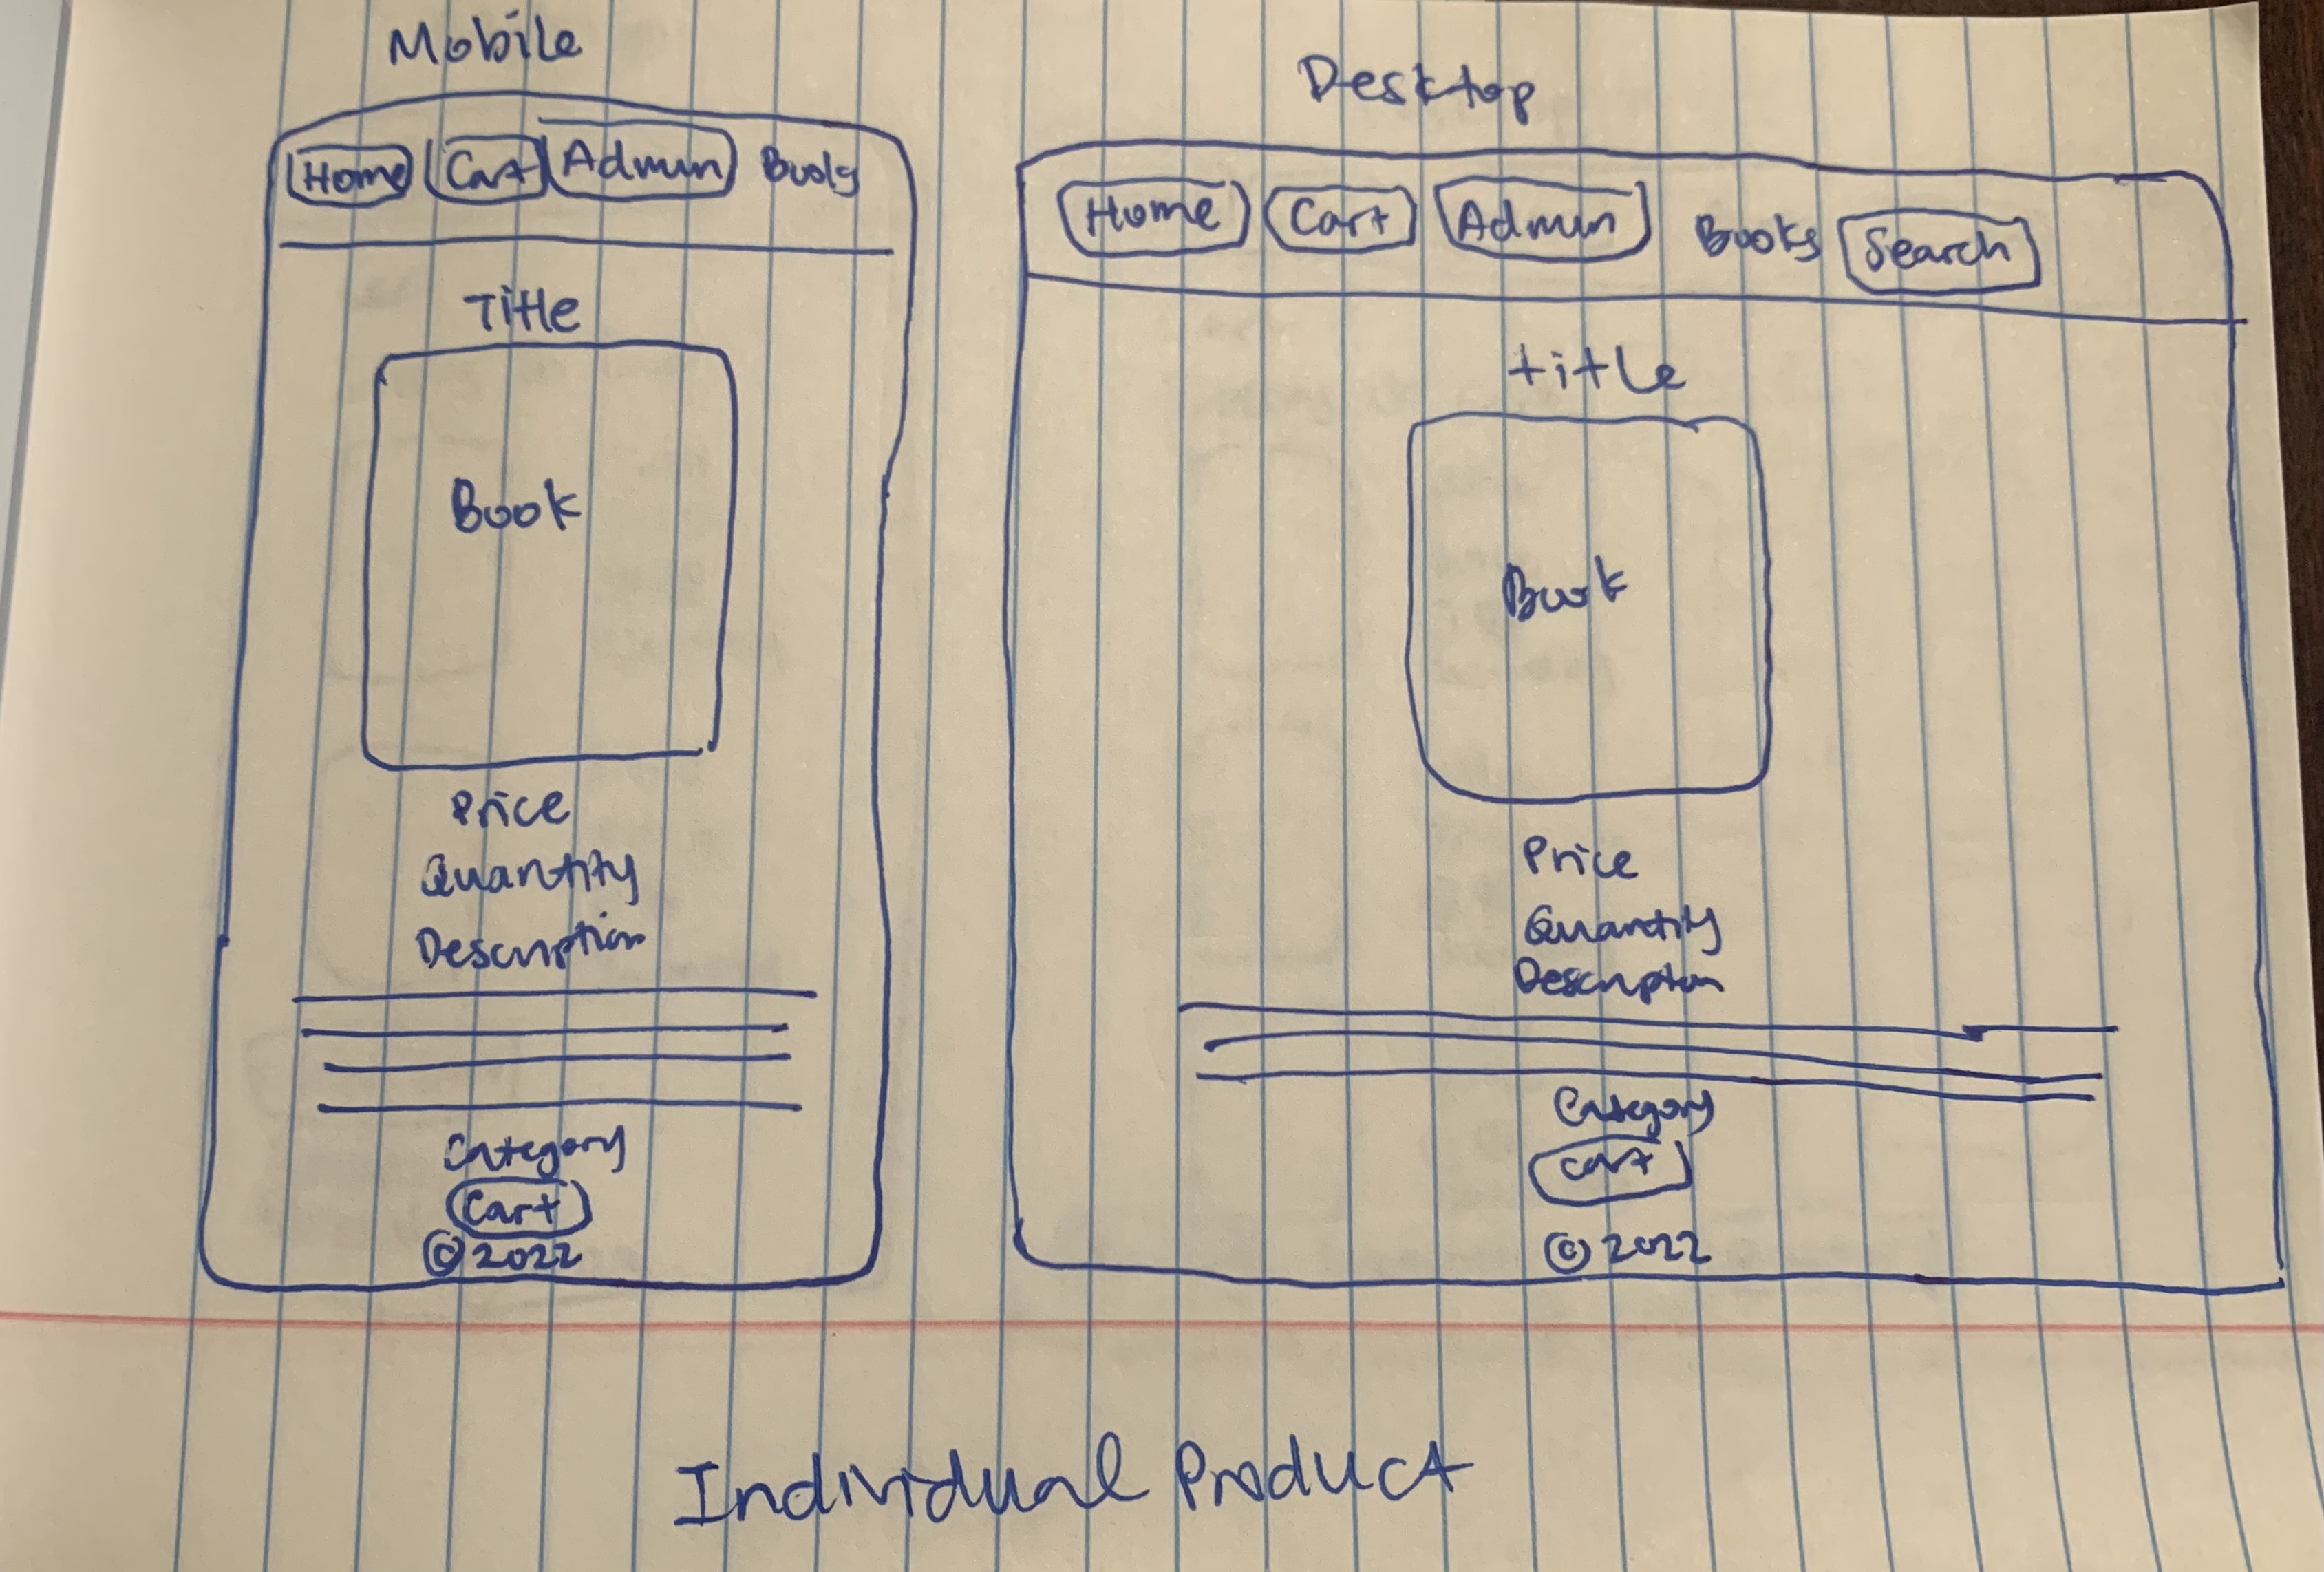 Mobile
Home Cart Admin Books
Title
Book
Price
Quantity
Description
Category
Cart
© 2022
Desktop
Home Cart Admin Books Search
title
Book
Price
Quantity
Description
Category
Cart
© 2022
Individual Product